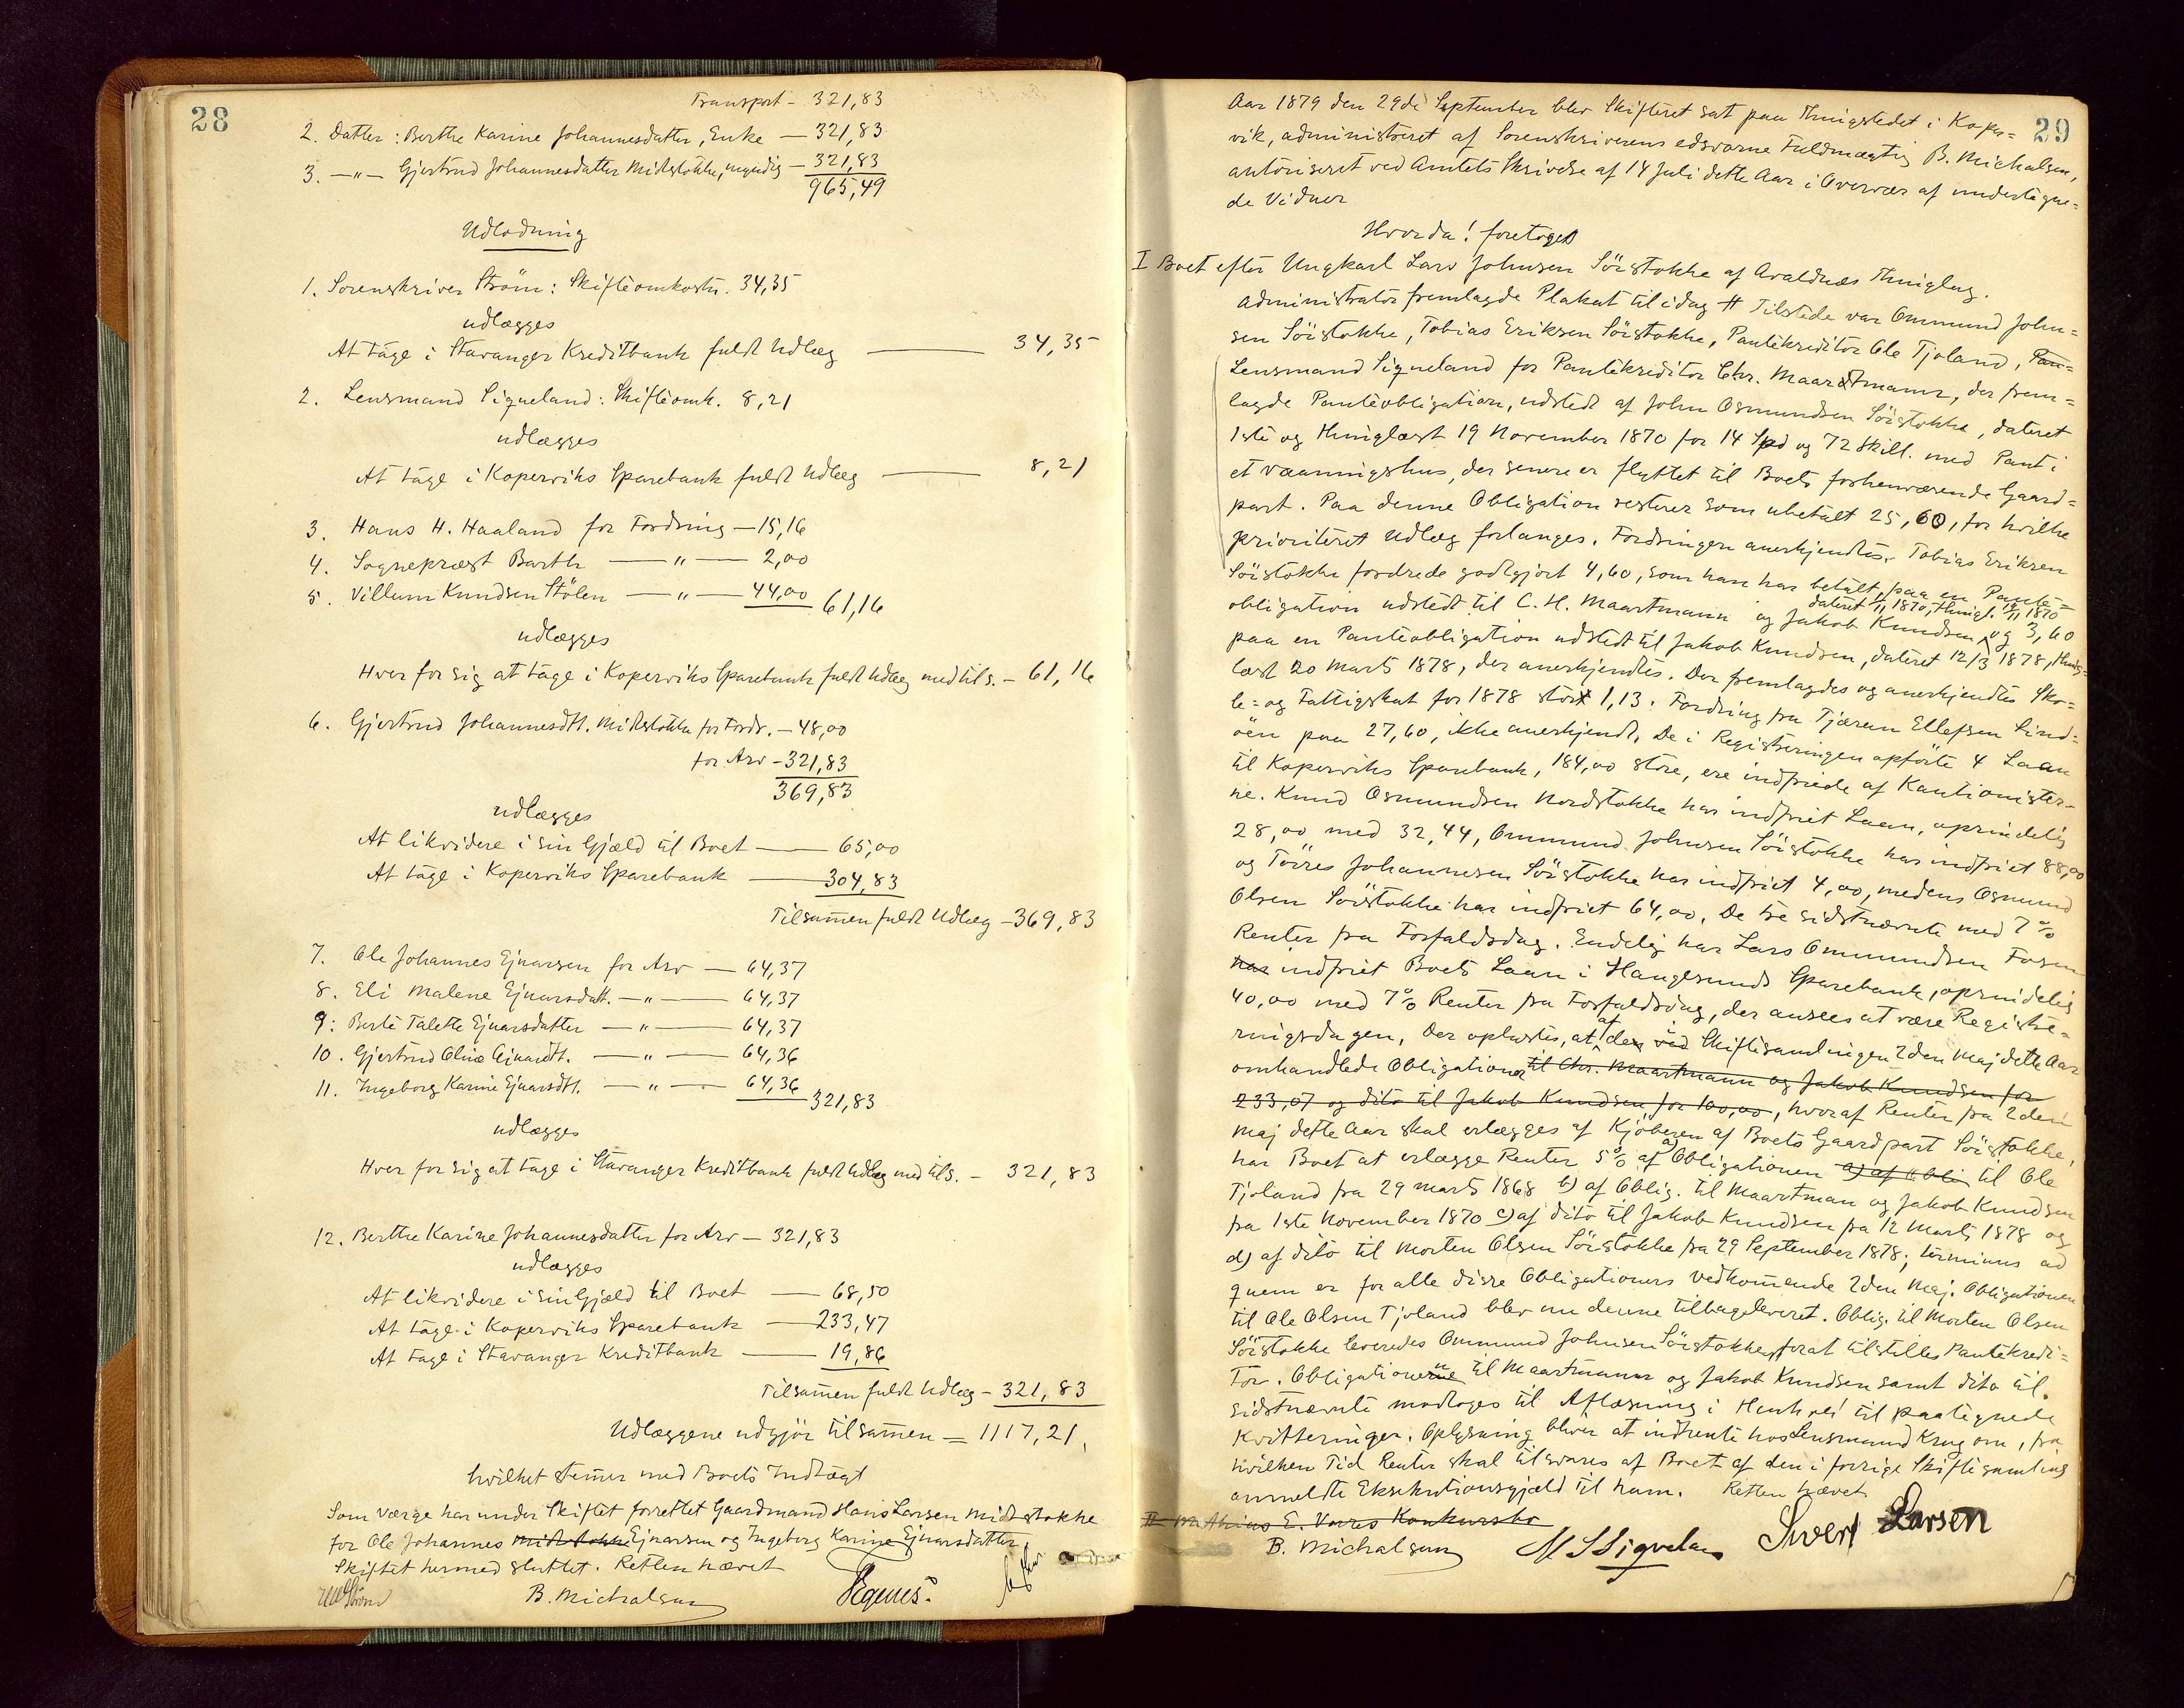 28
Transport - 321,83
2. Datter: Berthe Karine Johannesdatter, Enke — 321,83
3. —"— Gjertrud Johannesdatter Midtstokke, myndig — 321,83
965,49
Udlodning
1. Sorenskriver Ström: Skifteomkostn. 34,35
udlægges
At tage i Stavanger Kreditbank fuldt Udlæg — 34,35
2. Lensmand Sigveland: Skifteomk. 8,21
udlægges
At tage i Koperviks Sparebank fuldt Udlæg — 8,21
3. Hans H. Haaland for Fordring — 15,16
4. Sognepræst Barth —"— 2,00
5. Villum Knudsen Stölen —"— 44,00 61,16
udlægges
Hver for sig at tage i Koperviks Sparebank fuldt Udlæg med tils. - 61,16
6. Gjertrud Johannesdtt. Midtstokke for Fordr. - 48,00
for Arv - 321,83
369,83
udlægges
At likvidere i sin Gjæld til Boet — 65,00
At tage i Koperviks Sparebank — 304,83
Tilsammen fuldt Udlæg - 369,83
7. Ole Johannes Ejnarsen for Arv — 64,37
8. Eli Malene Ejnarsdatt. —"— 64,37
9. Berte Talette Ejnarsdatter —"— 64,37
10. Gjertrud Oline Ejnarsdtt. —"— 64,36
11. Ingeborg Karine Ejnarsdtt. —"— 64,36 321,83
udlægges
Hver for sig at tage i Stavanger Kreditbank fuldt Udlæg med tils. - 321,83
12. Berthe Karine Johannesdatter for Arv - 321,83
udlægges
At likvidere i sin Gjæld til Boet — 68,50
At tage i Koperviks Sparebank — 233,47
At tage i Stavanger Kreditbank — 19,86
Tilsammen fuldt Udlæg - 321,83
Udlæggene udgjör tilsammen = 1117,21,
hvilket stemmer med Boets Indtægt
Som Værge har under Skiftet forrettet Gaardmand Hans Larsen Midtstokke
for Ole Johannes Midtstokke Ejnarsen og Ingeborg Karine Ejnarsdatter
Skiftet hermed sluttet. Retten hævet
B. Michalsen
29
Aar 1879 den 29de September blev Skifteret sat paa Thingstedet i Koper=
vik, administreret af Sorenskriverens edsvorne Fuldmægtig B. Michalsen,
autoriseret ved Amtets Skrivelse af 14 Juli dette Aar i Overvær af undertegne=
de Vidner
Hvorda! foretoges
I Boet efter Ungkarl Lars Johnsen Sörstokke af Avaldsnæs Thinglag.
Administrator fremlagde Plakat til idag # Tilstede var Ommund John=
sen Sörstokke, Tobias Eriksen Sörstokke, Pantekreditor Ole Tjoland, Pan=
Lensmand Sigveland for Pantekreditor Chr. Maartmann, der frem=
lagde Panteobligation, udstedt af John Osmundsen Sörstokke, dateret
1ste og thinglæst 19 November 1870 for 14 Spd og 72 Skill. med Pant i
et Vaaningshus, der senere er flyttet til Boets forhenværende Gaard=
part. Paa denne Obligation resterer som ubetalt 25,60, for hvilke
prioriteret Udlæg forlanges. Fordringen anerkjendtes. Tobias Eriksen
Sörstokke fordrede godtgjort 4,60, som han har betalt, paa en Pante=
obligation udstedt til C. H. Maartmann og Jakob Knudsen, dateret 1/11 1870, thingl. 19/11 1870 og 3,60
paa en Panteobligation udstedt til Jakob Knudsen, dateret 12/3 1878, thing=
læst 20 Marts 1878, der anerkjendtes. Der fremlagdes og anerkjendtes Sko=
le= og Fattigskat for 1878 stor 1,13. Fordring fra Tjæran Ellefsen Lind=
öen paa 27,60, ikke anerkjendt. De i Registreringen opförte 4 Laan
til Koperviks Sparebank, 184,00 store, ere indfriede af Kautionister=
ne. Knud Osmundsen Nordstokke har indfriet Laan, oprindelig
28,00 med 32,44, Ommund Johnsen Sörstokke har indfriet 88,00
og Törres Johannesen Sörstokke har indfriet 4,00, medens Osmund
Olsen Sörstokke har indfriet 64,00. De tre sidstnævnte med 7%
Renter fra Forfaldsdag. Endelig har Lars Ommundsen Fosen
har indfriet Boets Laan i Haugesunds Sparebank, oprindelig
40,00 med 7% Renter fra Forfaldsdag, der ansees at være Registre=
ringsdagen. Der oplystes, at af den ved i Skiftesamlingen 2den Maj dette Aar
omhandlede Obligationer til Chr. Maartmann og Jakob Knudsen for
233,07 og dito til Jakob Knudsen for 100,00, hvoraf Renter fra 2den
Maj dette Aar skal erlægges af Kjöberen af Boets Gaardpart Sörstokke,
har Boet at erlægge Renter 5% a) af Obligationen a) af Obli til Ole
Tjoland fra 29 Marts 1868 b) af Oblig. til Maartman og Jakob Knudsen
fra 1ste November 1870 c) af dito til Jakob Knudsen fra 12 Marts 1878 og
d) af dito til Morten Olsen Sörstokke fra 29 September 1878; terminus ad
quem er for alle disse Obligationers Vedkommende 2den Maj. Obligationen
til Ole Olsen Tjoland blev nu denne tilbageleveret. Oblig. til Morten Olsen
Sörstokke leveredes Ommund Johnsen Sörstokke, forat tilstilles Pantekredi=
tor. Obligationerne til Maartmann og Jakob Knudsen samt dito til
sidstnævnte modtoges til Aflæsning i Henhold til paategnede
Kvitteringer. Oplysning bliver at indhente hos Lensmand Krag om, fra
hvilken Tid Renter skal tilsvares af Boet af den i forrige Skiftesamling
anmeldte Eksekutionsgjæld til ham. Retten hævet
II Mathias E. Vorres Konkursbo
B. Michalsen
M S Sigveland
Sivert Larsen